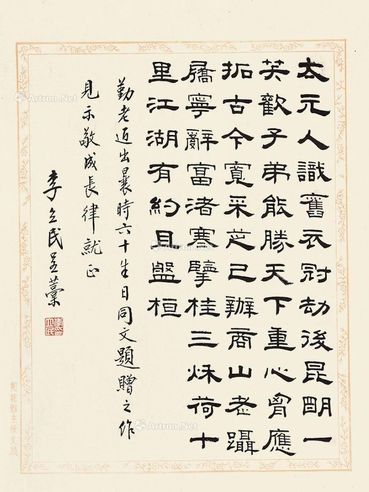 太元人識舊衣冠劫後昆明一
笑歡子弟能勝天下重心胷應
拓古今寬采芝已辦商山老躡
屩寧辭富渚寒擘桂三秌荷十
里江湖有約且盤桓
勤老近出曩時六十生日同文題贈之作
見示敬成長律就正
李立民呈藁
Artron.Net